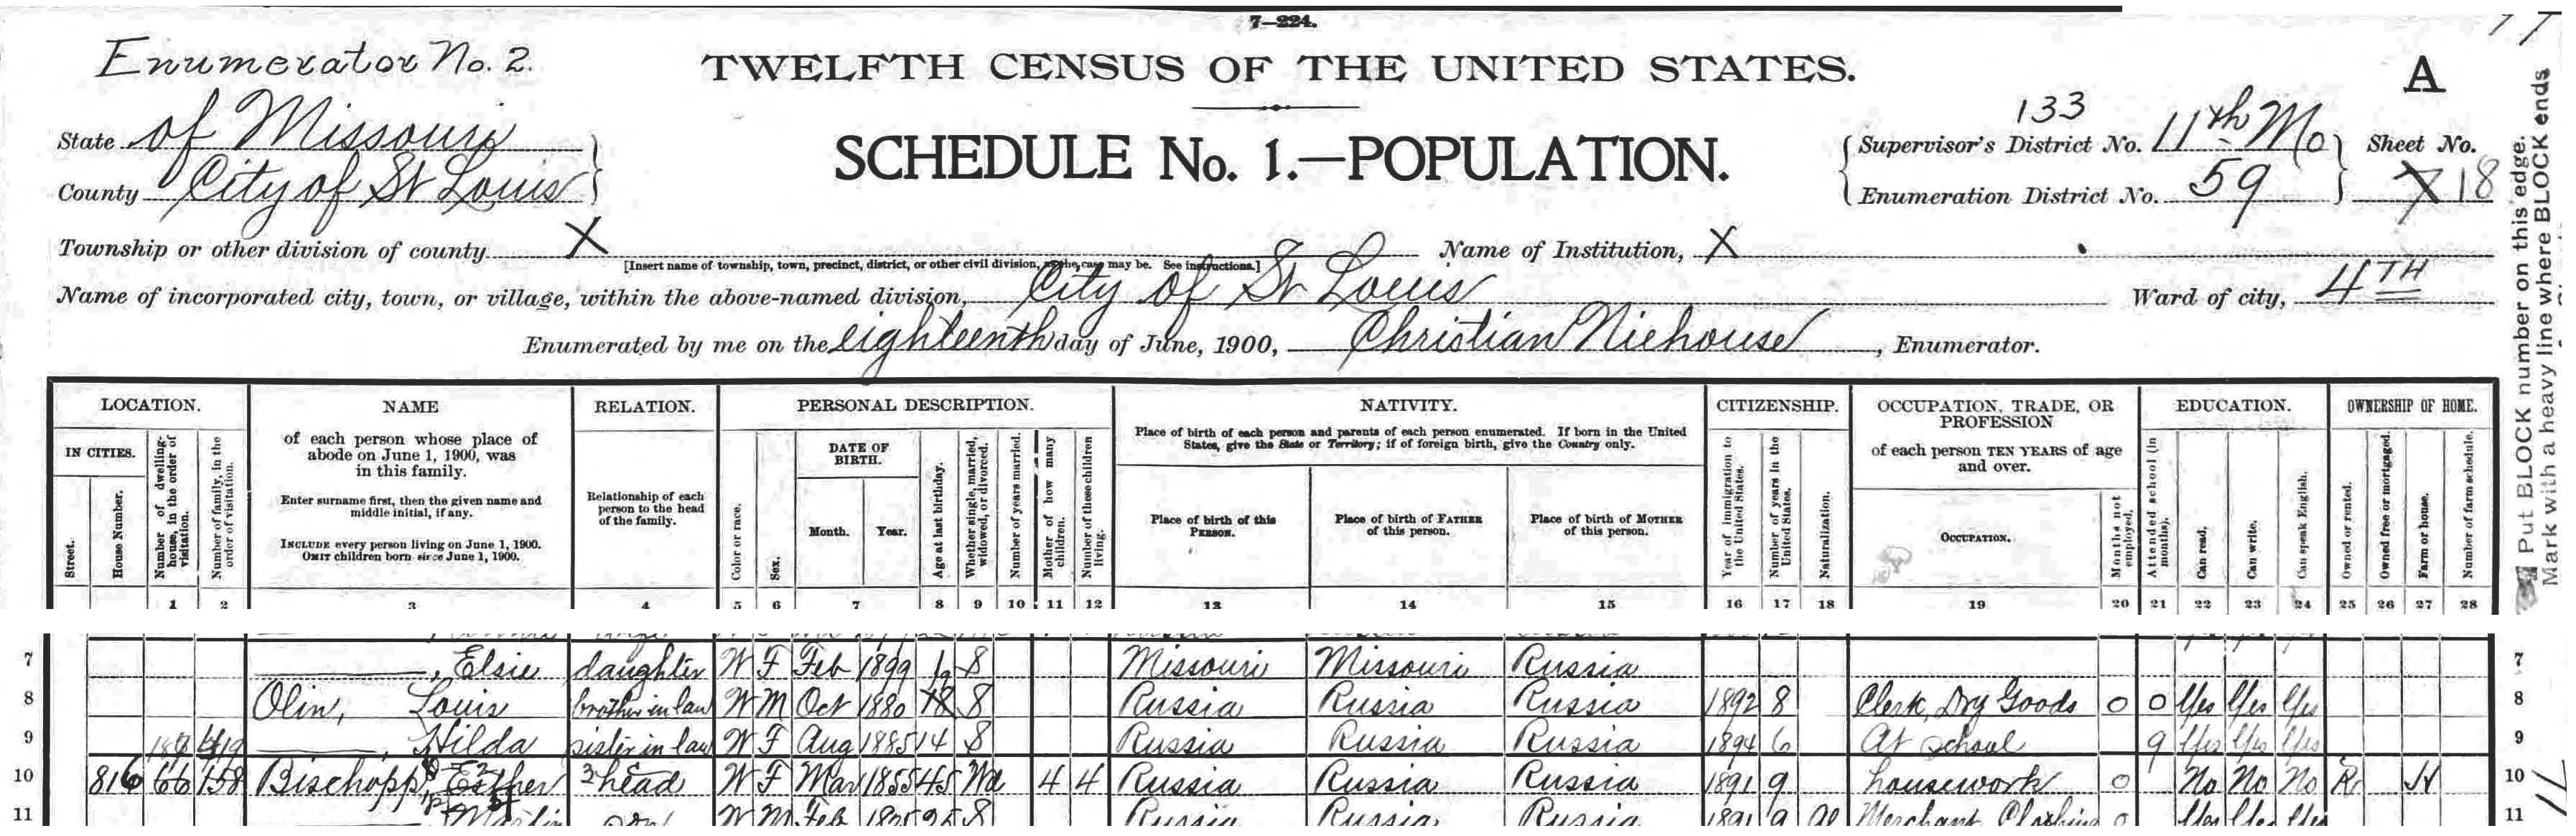 7—224.
Enumerator No. 2.
TWELFTH CENSUS OF THE UNITED STATES.
A
State of Missouri
County City of St Louis
SCHEDULE No. 1.—POPULATION.
133
Supervisor's District No. 11th Mo
Enumeration District No. 59
Sheet No.
18
Township or other division of county X
[Insert name of township, town, precinct, district, or other civil division, as the case may be. See instructions.]
Name of Institution, X
Name of incorporated city, town, or village, within the above-named division, City of St Louis
Ward of city, 4TH
Enumerated by me on the eighteenth day of June, 1900, Christian Niehouse, Enumerator.
Put BLOCK number on this edge.
Mark with a heavy line where BLOCK ends
LOCATION.
IN CITIES.
Street.
House Number.
Number of dwelling-house, in the order of visitation.
Number of family, in the order of visitation.
NAME
of each person whose place of
abode on June 1, 1900, was
in this family.
Enter surname first, then the given name and
middle initial, if any.
INCLUDE every person living on June 1, 1900.
OMIT children born since June 1, 1900.
RELATION.
Relationship of each
person to the head
of the family.
PERSONAL DESCRIPTION.
Color or race.
Sex.
DATE OF
BIRTH.
Month.
Year.
Age at last birthday.
Whether single, married, widowed, or divorced.
Number of years married.
Mother of how many children.
Number of these children living.
NATIVITY.
Place of birth of each person and parents of each person enumerated. If born in the United
States, give the State or Territory; if of foreign birth, give the Country only.
Place of birth of this
PERSON.
Place of birth of FATHER
of this person.
Place of birth of MOTHER
of this person.
CITIZENSHIP.
Year of immigration to the United States.
Number of years in the United States.
Naturalization.
OCCUPATION, TRADE, OR
PROFESSION
of each person TEN YEARS of age
and over.
OCCUPATION.
Months not employed.
EDUCATION.
Attended school (in months).
Can read.
Can write.
Can speak English.
OWNERSHIP OF HOME.
Owned or rented.
Owned free or mortgaged.
Farm or house.
Number of farm schedule.
1 2 3 4 5 6 7 8 9 10 11 12 13 14 15 16 17 18 19 20 21 22 23 24 25 26 27 28
7 , Elsie daughter W F Feb 1899 S Missouri Missouri Russia 7
8 Olin, Louis brother in law W M Oct 1880 18 S Russia Russia Russia 1892 8 Clerk, Dry Goods 0 0 Yes Yes Yes 8
9 , Hilda sister in law W F Aug 1885 14 S Russia Russia Russia 1894 6 At school 9 Yes Yes Yes 9
10 816 66 158 Bischopp, Esther head W F Mar 1855 45 Wd 4 4 Russia Russia Russia 1891 9 housework 0 No No No R H 10
11 Martin son W M Feb S Russia Russia Russia 1891 9 Al Merchant Clothing 0 Yes Yes Yes 11